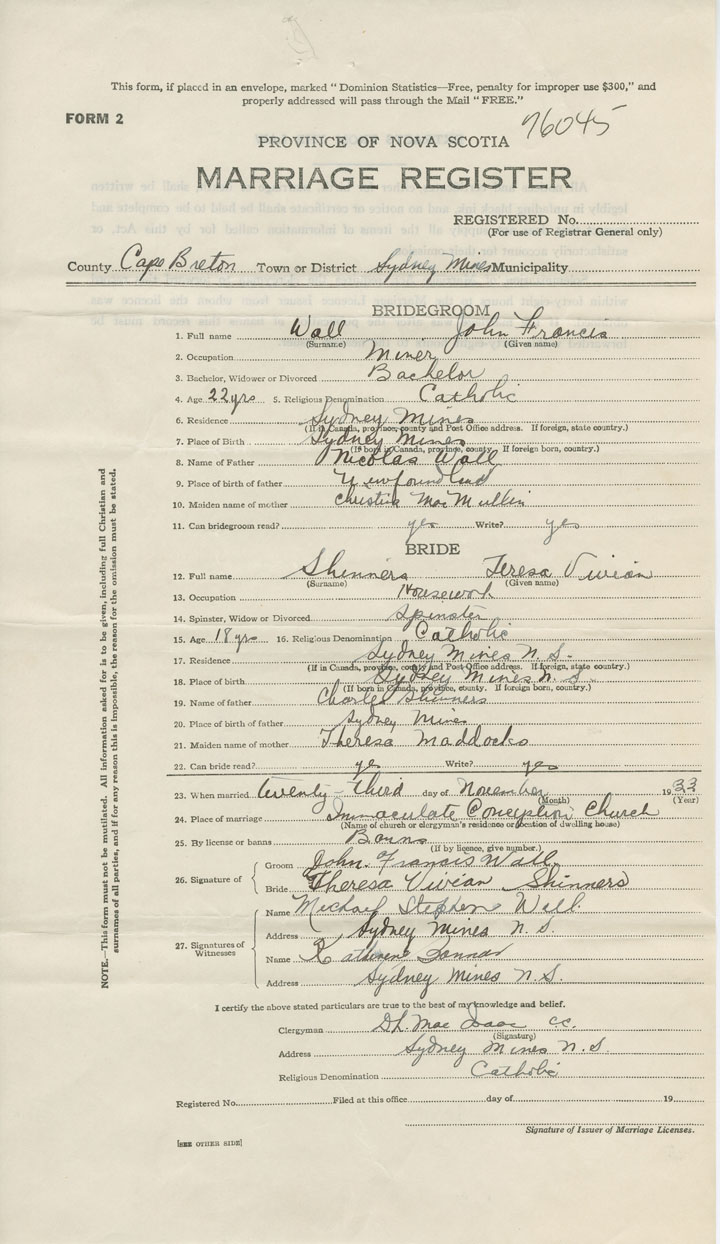 This form, if placed in an envelope, marked "Dominion Statistics—Free, penalty for improper use $300," and
properly addressed will pass through the Mail "FREE."
FORM 2
76045
PROVINCE OF NOVA SCOTIA
MARRIAGE REGISTER
REGISTERED No.
(For use of Registrar General only)
County Cape Breton Town or District Sydney Mines Municipality
BRIDEGROOM
1. Full name Wall John Francis
(Surname) (Given name)
2. Occupation Miner
3. Bachelor, Widower or Divorced Bachelor
4. Age 22 yrs 5. Religious Denomination Catholic
6. Residence Sydney Mines
(If in Canada, province, county and Post Office address. If foreign, state country.)
7. Place of Birth Sydney Mines
(If born in Canada, province, county. If foreign born, country.)
8. Name of Father Nicolas Wall
9. Place of birth of father Newfoundland
10. Maiden name of mother Christina MacMullin
11. Can bridegroom read? yes Write? yes
BRIDE
12. Full name Shinners Teresa Vivian
(Surname) (Given name)
13. Occupation Housework
14. Spinster, Widow or Divorced Spinster
15. Age 18 yrs 16. Religious Denomination Catholic
17. Residence Sydney Mines N.S.
(If in Canada, province, county and Post Office address. If foreign, state country.)
18. Place of birth Sydney Mines N.S.
(If born in Canada, province, county. If foreign born, country.)
19. Name of father Charles Shinners
20. Place of birth of father Sydney Mines
21. Maiden name of mother Theresa Maddocks
22. Can bride read? yes Write? yes
23. When married twenty-third day of November 1933
(Month) (Year)
24. Place of marriage Immaculate Conception Church
(Name of church or clergyman's residence or location of dwelling house)
25. By license or banns Banns
(If by licence, give number.)
26. Signature of Groom John Francis Wall
Bride Theresa Vivian Shinners
27. Signatures of Witnesses Name Michael Stephen Wall
Address Sydney Mines N.S.
Name Katherine
Address Sydney Mines N.S.
I certify the above stated particulars are true to the best of my knowledge and belief.
Clergyman D.L. MacIsaac cc.
(Signature)
Address Sydney Mines N.S.
Religious Denomination Catholic
Registered No. Filed at this office day of 19
Signature of Issuer of Marriage Licenses.
[SEE OTHER SIDE]
NOTE.—This form must not be mutilated. All information asked for is to be given, including full Christian and
surnames of all parties, and if for any reason this is impossible, the reason for the omission must be stated.